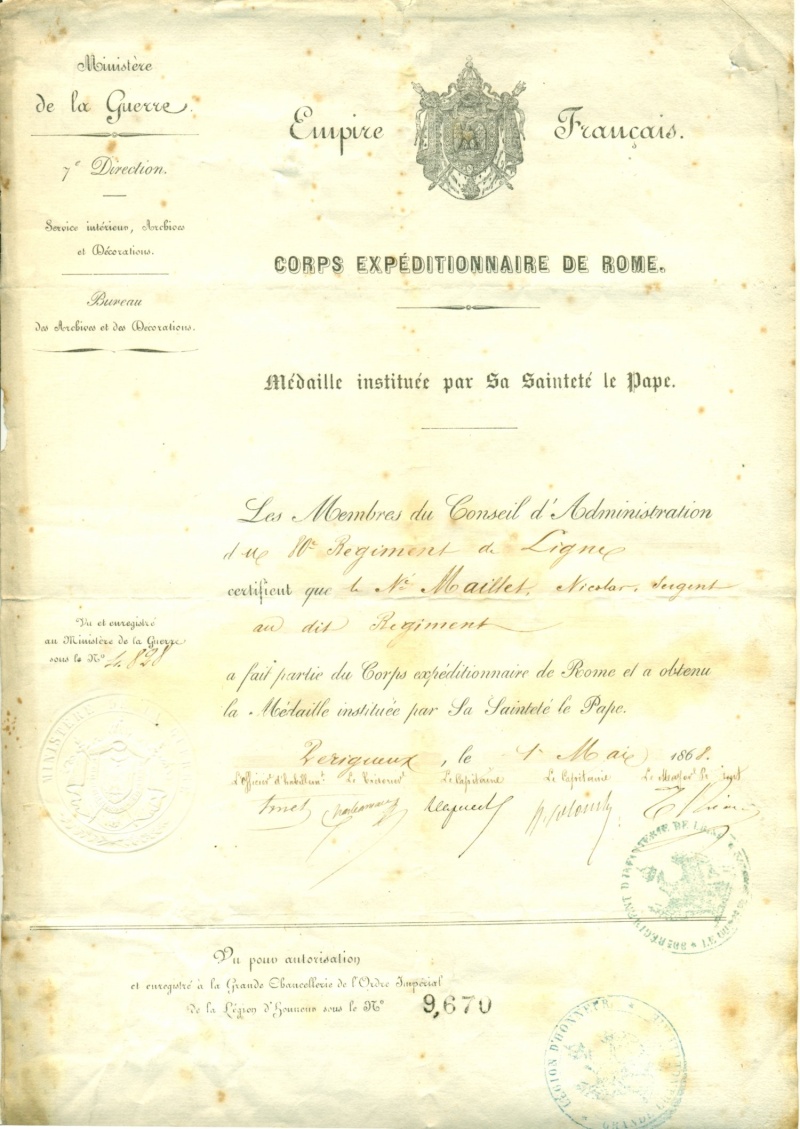 Ministère
de la Guerre.
7e Direction.
Service intérieur, Archives
et Décorations.
Bureau
des Archives et des Décorations.
Empire Français.
CORPS EXPÉDITIONNAIRE DE ROME.
Médaille instituée par Sa Sainteté le Pape.
Les Membres du Conseil d'Administration
du 80e Regiment de Ligne
certifient que le Né Maillet, Nicolas, Sergent
au dit Regiment
a fait partie du Corps expéditionnaire de Rome et a obtenu
la Médaille instituée par Sa Sainteté le Pape.
Vu et enregistré
au Ministère de la Guerre
sous le No 4828
MINISTERE
Perigueux, le 1er Mai 1868.
L'Officier d'habillemt Le Trésorier Le Capitaine Le Capitaine Le Major
REGIMENT D'INFANTERIE DE LIGNE
Vu pour autorisation
et enregistré à la Grande Chancellerie de l'Ordre Impérial
de la Légion d'Honneur sous le No 9,670
LEGION D'HONNEUR
GRANDE